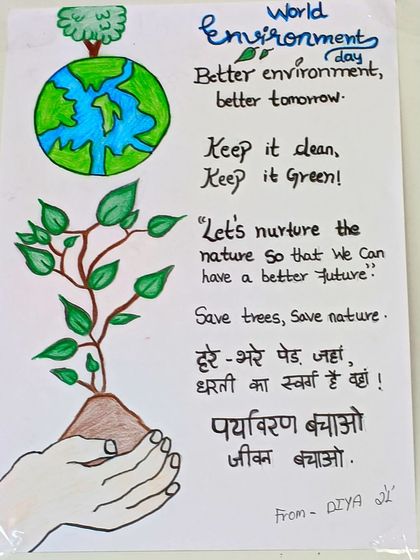 World
Environment
day
Better environment,
better tomorrow.
Keep it clean,
Keep it Green!
"Let's nurture the
nature so that We Can
have a better future".
Save trees, Save nature.
हरे-भरे पेड़ जहां,
धरती का स्वर्ग है वहां !
पर्यावरण बचाओ
जीवन बचाओ.
From- DIYA